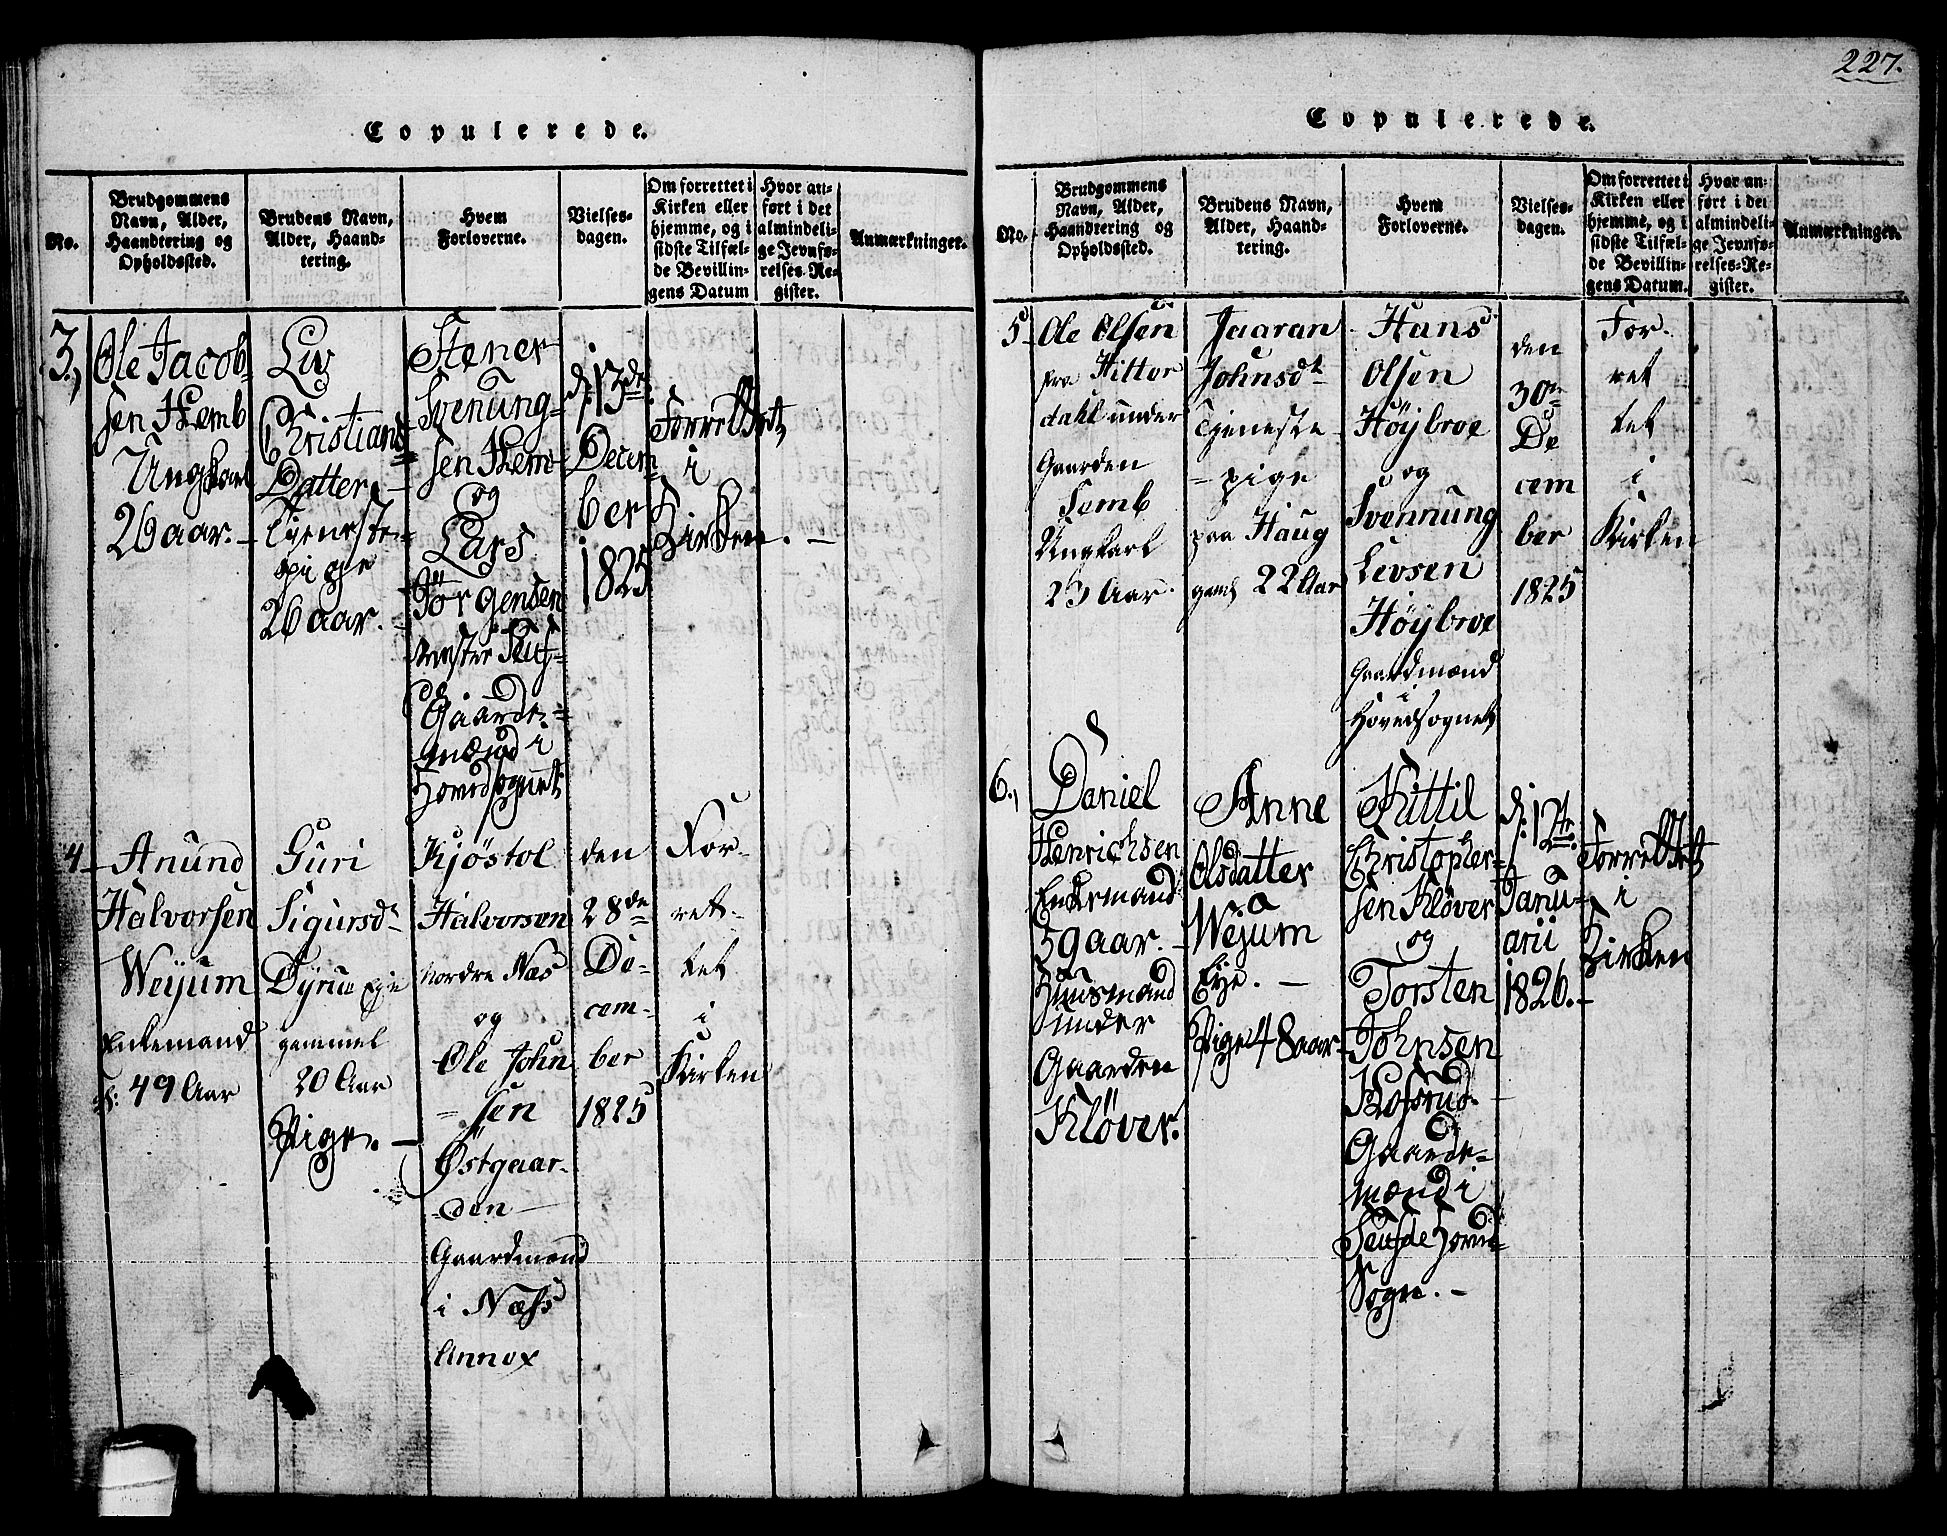 Copulerede.
No.
Brudgommens
Navn, Alder,
Haandtering og
Opholdssted.
Brudens Navn,
Alder, Haand-
tering.
Hvem
Forloverne.
Vielses-
dagen.
Om forrettet i
Kirken eller
hjemme, og i
sidste Tilfæl-
de Bevillin-
gens Datum
Hvor an-
ført i det
almindeli-
ge Jevnfø-
relses-Re-
gister.
Anmærkninger.
3.,
Ole Jacob-
sen Hemb
Ungkarl
26 aar. -
Liv
Christians-
Datter -
Tjeneste-
pige
26 aar. -
Stener
Svenung-
sen Hem-
og
Lars
Jörgensen
Gaarde-
mænd i
Hovedsognet
d. 13de
Decem
ber
1825
Forrettet
i
Kirken. -
4
Anund
Halvorsen
Weyum
Enkemand
49 Aar
Guri
Sigursdt
gammel
20 Aar
Pige. -
Kjöstol
Halvorsen
nordre Næs
og
Ole John
- sen
Østgaar-
- den
Gaardmænd
i Næss
Annex
den
28de
De-
cem-
ber
1825
For-
ret-
tet
i
Kirken
227.
Copulerede.
No.
Brudgommens
Navn, Alder,
Haandtering og
Opholdssted.
Brudens Navn,
Alder, Haand-
tering.
Hvem
Forloverne.
Vielses-
dagen.
Om forrettet i
Kirken eller
hjemme, og i
sidste Tilfæl-
de Bevillin-
gens Datum.
Hvor an-
ført i det
almindeli-
ge Jevnfø-
relses-Re-
gister.
Anmærkninger.
5
Ole Olsen
fra Hitter
dahl under
Gaarden
Semb
Ungkarl
23 Aar.
Jaaran
Johnsdt
Tjeneste-
- pige
paa Haug
22 Aar
Hans
Olsen
Höybroe
og
Svennung
Levsen
Höybroe
Gaardmænd
i
Hovedsognet
den
30te
De
cem
ber
1825
For-
ret
tet
i
Kirken
6.,
Daniel
Henrichsen
Enkemand
59 aar. -
Huusmand
under
Gaarden
Kløver.
Anne
Olsdatter
Wejum
Eye. -
Pige 48 aar
Kittil
Christopher-
sen Kløver
og
Torsten
Johnsen
Gaarde-
mænd i
Sogn. -
d. 12te
Janu-
arii
1826. -
Forrettet
i
Kirken